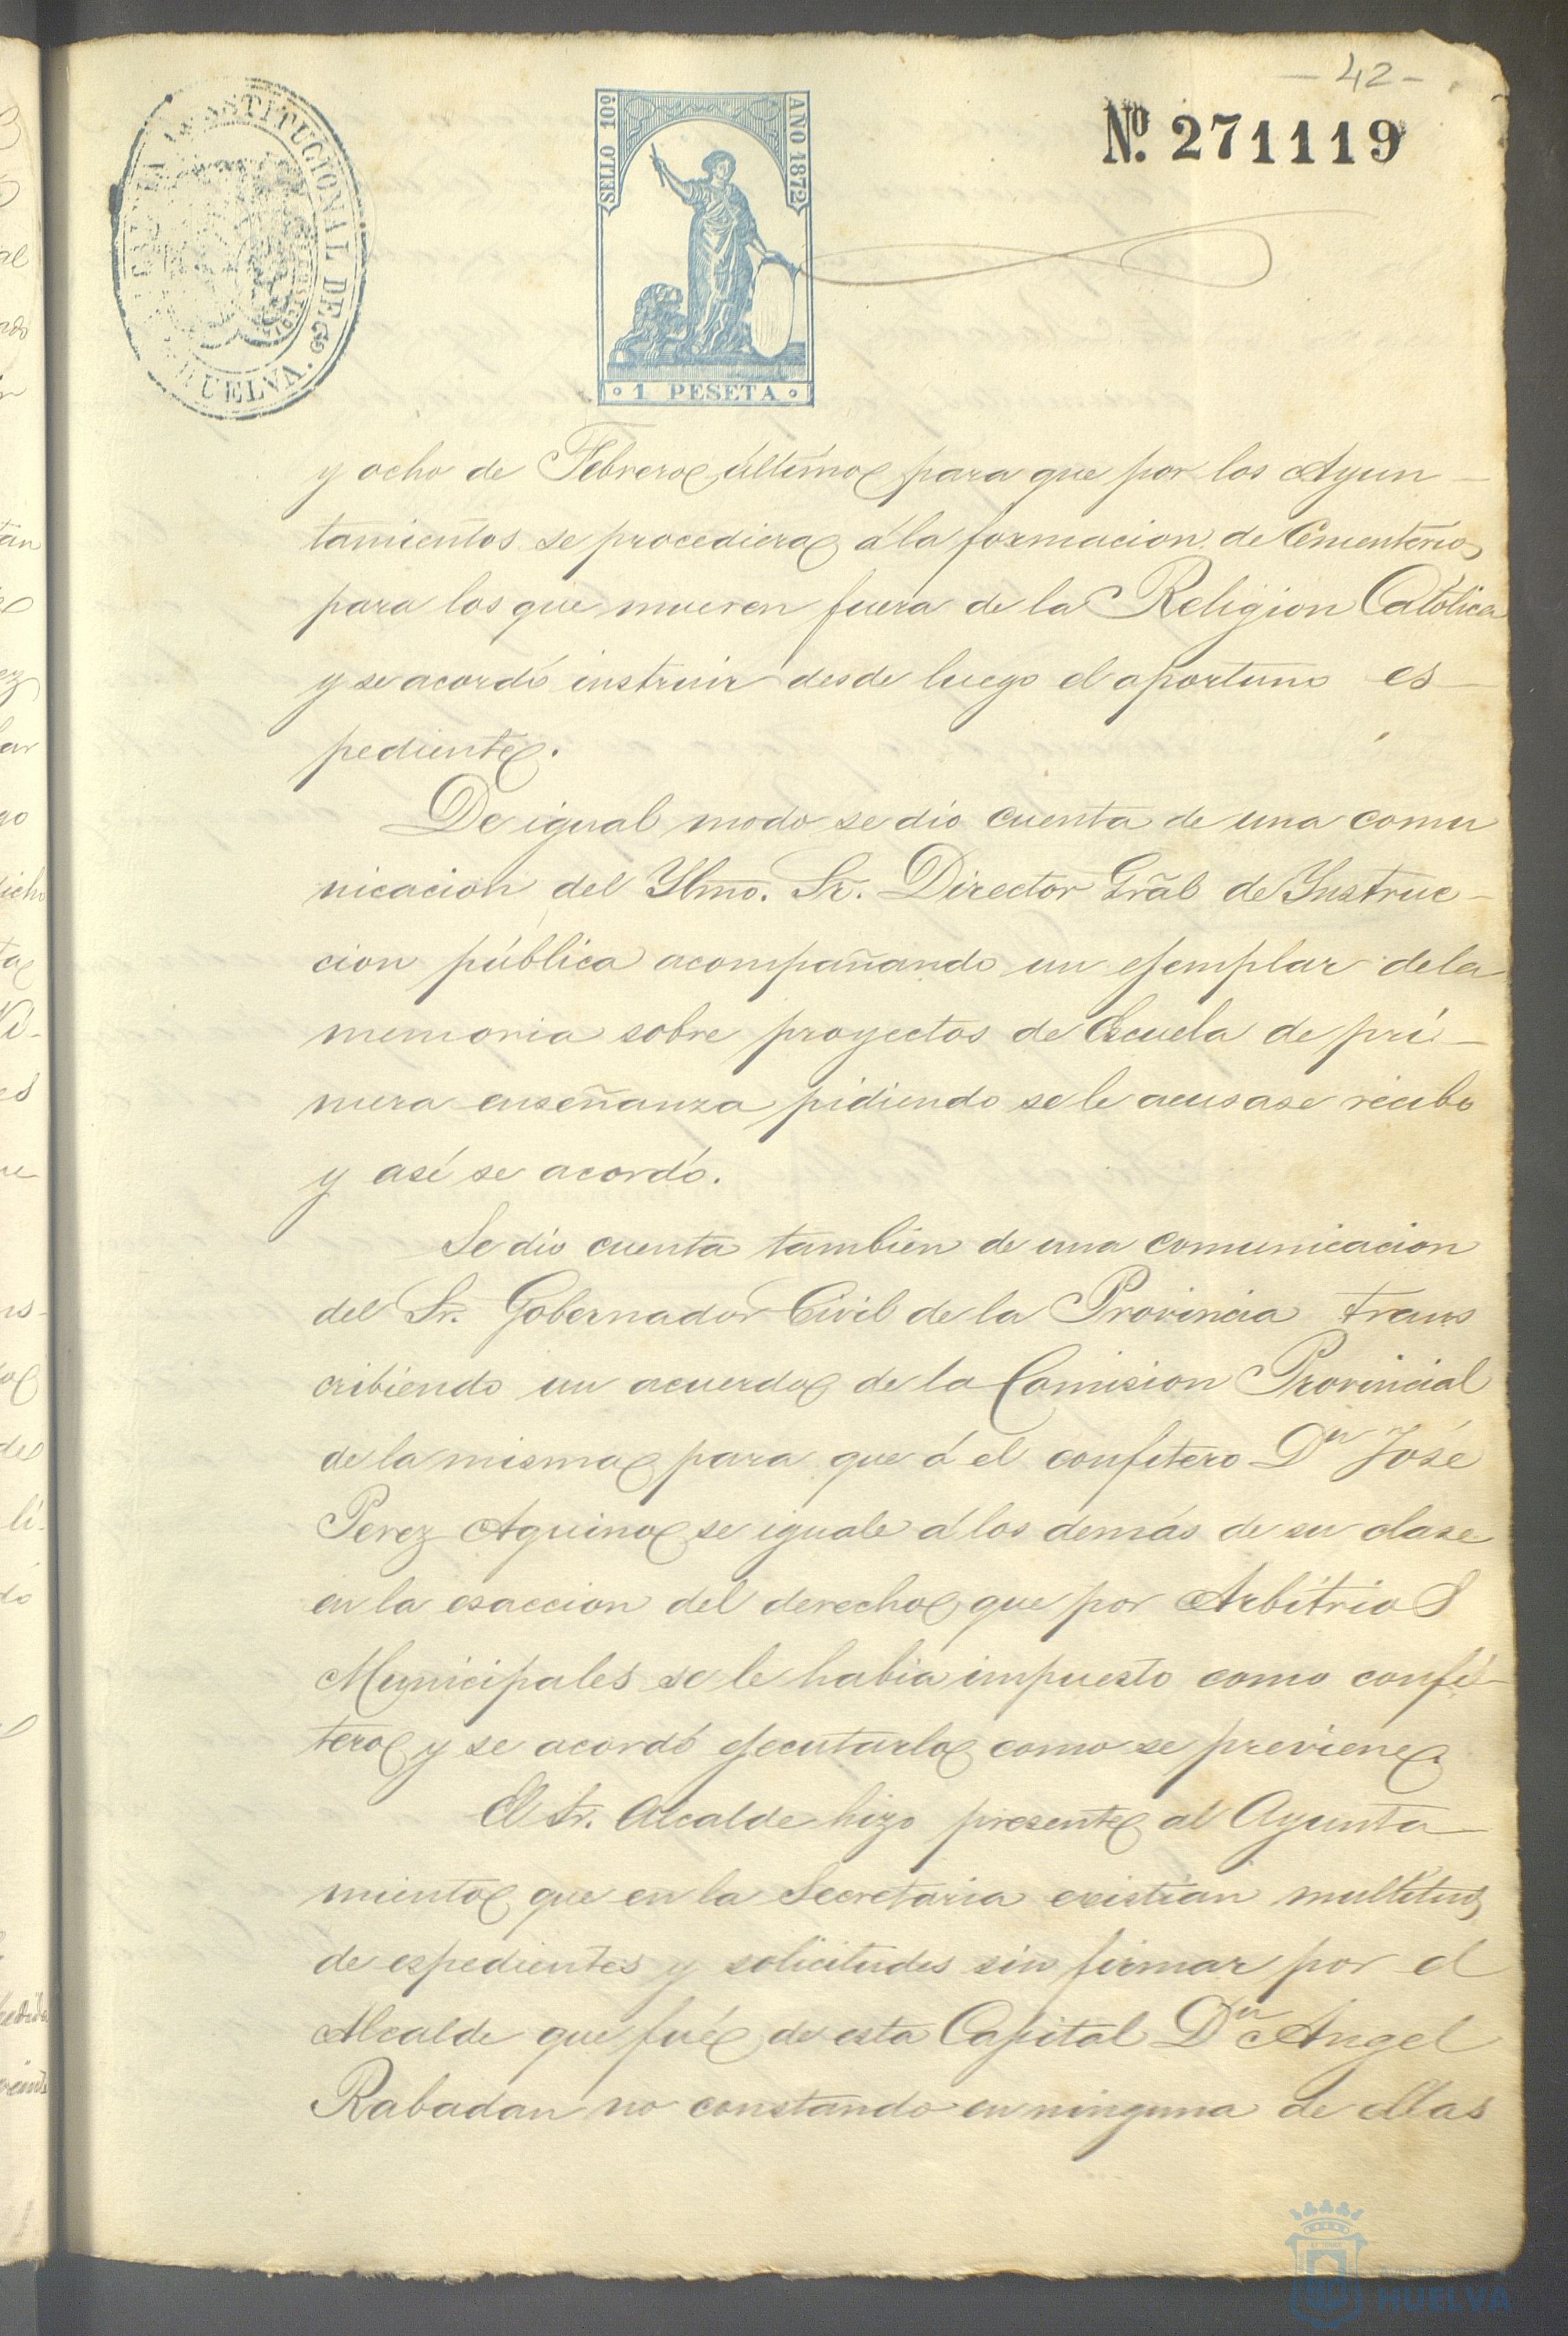 - 42 -
Nº. 271119
SELLO 10º
AÑO 1872
1 PESETA
CONSTITUCIONAL DE
HUELVA.
y ocho de Febrero último para que por los Ayun-
tamientos se procediera á la formacion de Cementerios
para los que mueren fuera de la Religion Católica
y se acordó instruir desde luego el oportuno es-
pediente.
De igual modo se dió cuenta de una comu
nicacion del Ylmo. Sr. Director Gral de Ynstruc-
cion pública acompañando un ejemplar de la
memoria sobre proyectos de Escuela de pri-
mera enseñanza pidiendo se le acusase recibo
y asi se acordó.
Se dió cuenta tambien de una comunicacion
del Sr. Gobernador Civil de la Provincia trans
cribiendo un acuerdo de la Comision Provincial
de la misma para que á el confitero Dn José
Perez Aquino se iguale á los demás de su clase
en la esaccion del derecho que por Arbitrios
Municipales se le habia impuesto como confi-
tero y se acordó ejecutarlo como se previene.
El Sr. Alcalde hizo presente al Ayunta-
miento que en la Secretaria existian multitud
de espedientes y solicitudes sin firmar por el
Alcalde que fué de esta Capital Dn Angel
Rabadan no constando en ninguna de ellas
HUELVA